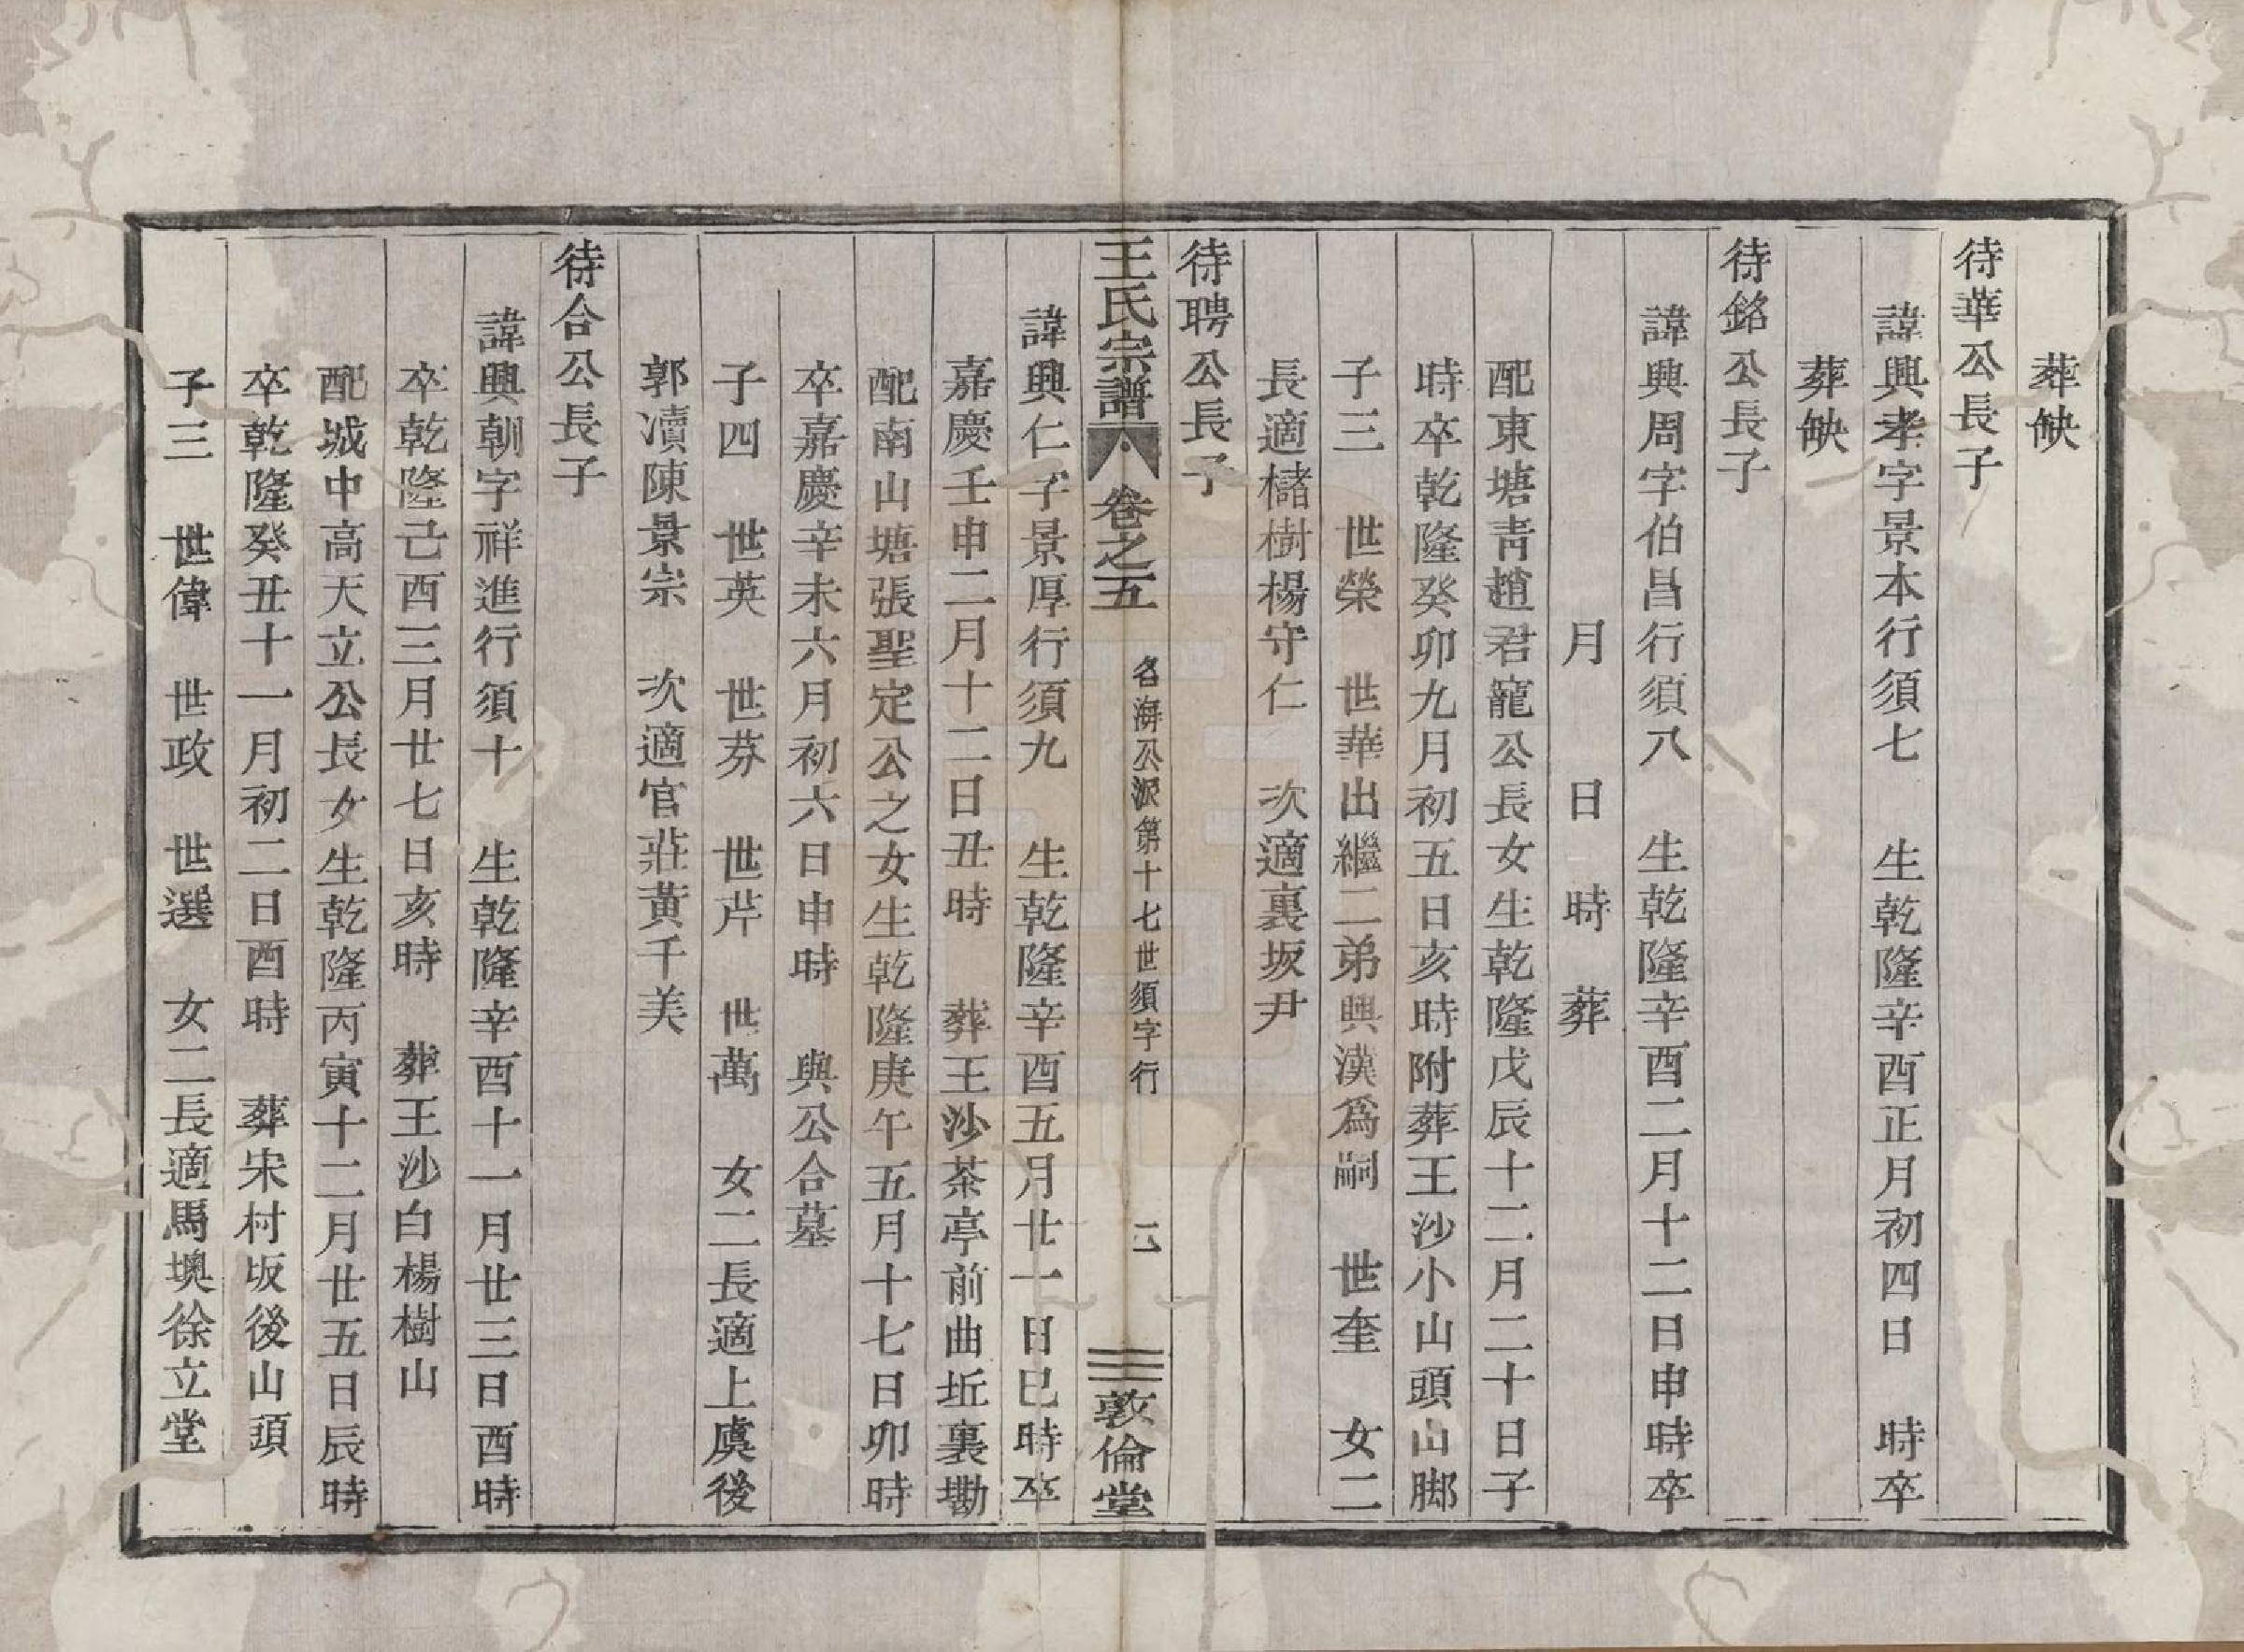 葬缺
待華公長子
諱興孝字景本行須七　生乾隆辛酉正月初四日　時卒
葬缺
待銘公長子
諱興周字伯昌行須八　生乾隆辛酉二月十二日申時卒
月　日　時　葬
配東塘靑趙君寵公長女生乾隆戊辰十二月二十日子
時卒乾隆癸卯九月初五日亥時附葬王沙小山頭山脚
子三　世榮　世華出繼二弟興漢爲嗣　世奎　女二
長適櫧樹楊守仁　次適裏坂尹
待聘公長子
王氏宗譜　卷之五　名海公派第十七世須字行　二　敦倫堂
諱興仁字景厚行須九　生乾隆辛酉五月廿一日巳時卒
嘉慶壬申二月十二日丑時　葬王沙茶亭前曲坵裏墈
配南山塘張聖定公之女生乾隆庚午五月十七日卯時
卒嘉慶辛未六月初六日申時　與公合墓
子四　世英　世芬　世芹　世萬　女二長適上虞後
郭瀆陳景宗　次適官莊黃千美
待合公長子
諱興朝字祥進行須十　生乾隆辛酉十一月廿三日酉時
卒乾隆己酉三月廿七日亥時　葬王沙白楊樹山
配城中高天立公長女生乾隆丙寅十二月廿五日辰時
卒乾隆癸丑十一月初二日酉時　葬宋村坂後山頭
子三　世偉　世政　世選　女二長適馬墺徐立堂